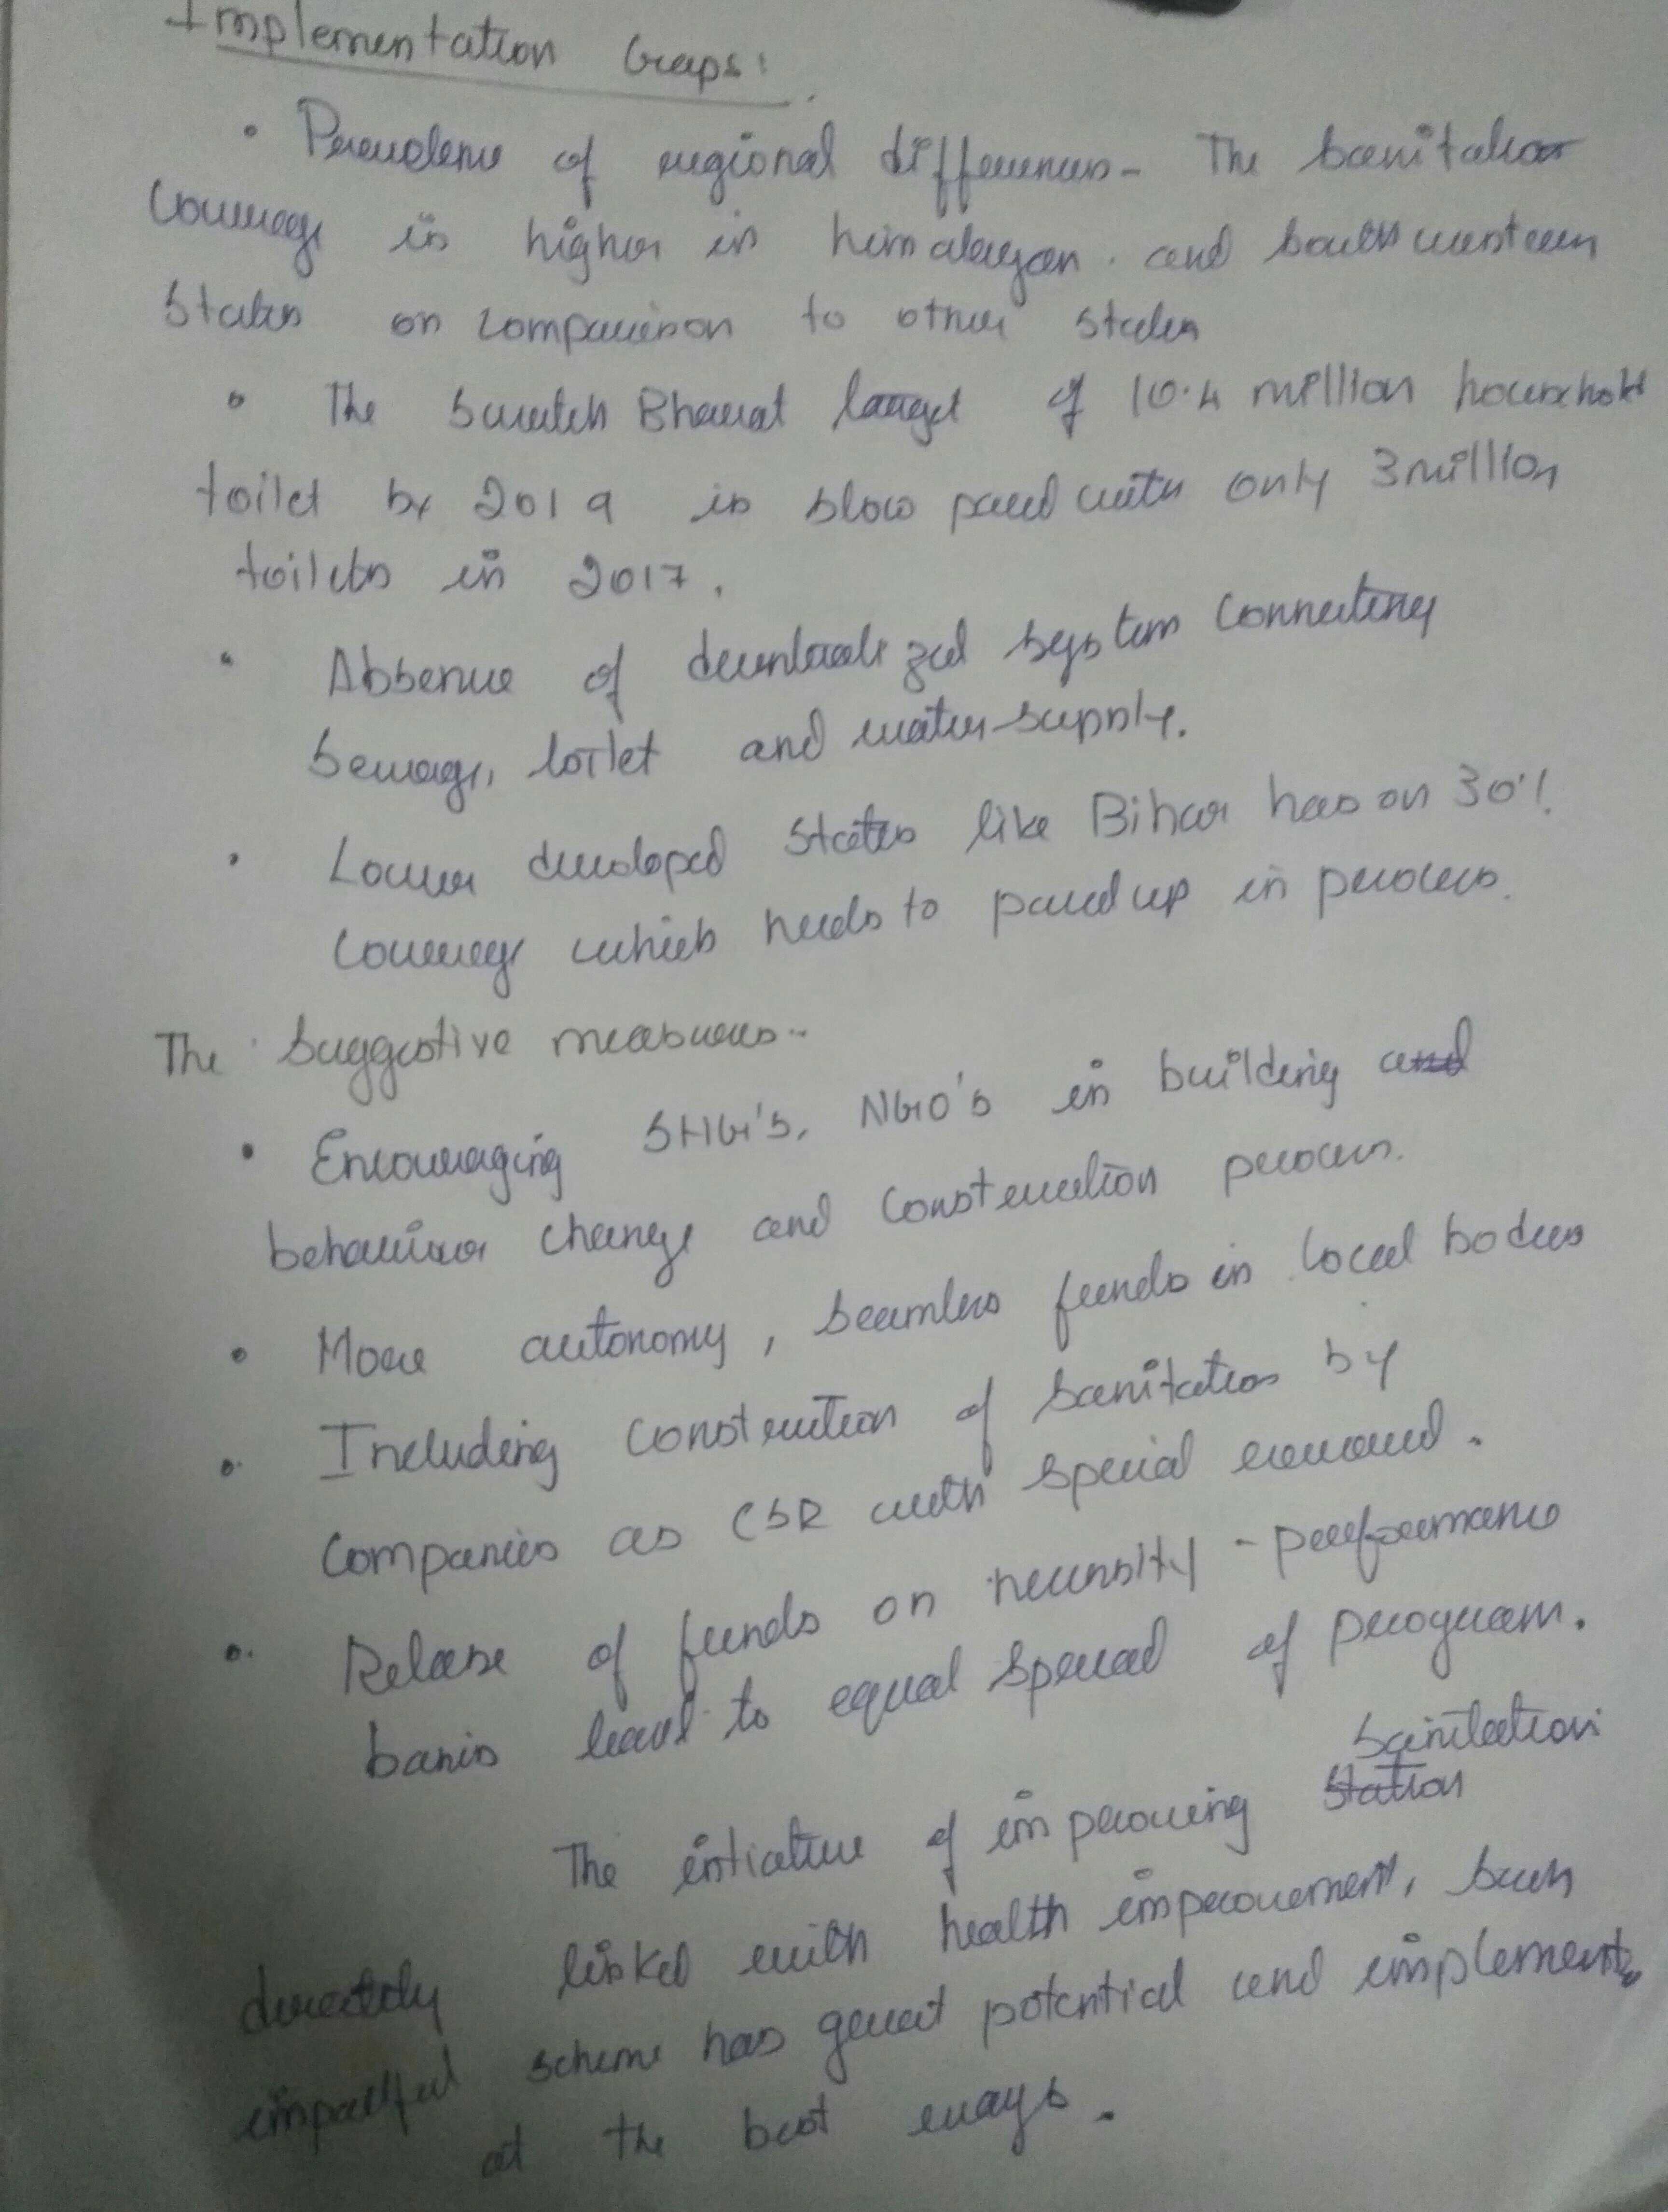 Implementation Gaps:
• Prevalence of regional differences - The sanitation
coverage is higher in himalayan and south western
states on comparison to other states
• The Swatch Bharat target of 10.4 million household
toilet by 2019 is slow paced with only 3 million
toilets in 2017.
• Absence of decentralized system connecting
sewage, toilet and water supply.
• Lower developed states like Bihar has on 30%
coverage which needs to paced up in process.
The Suggestive measures -
• Encouraging SHG's, NGO's in building and
behaviour change and construction process.
• More autonomy, seamless funds in local bodies
• Including construction of sanitation by
companies as CSR with special reward.
• Release of funds on necessity - performance
basis lead to equal spread of program.
Sanitation
The intiative of improving station
directely linked with health improvement, such
impactful scheme has great potential and implements
at the best ways.